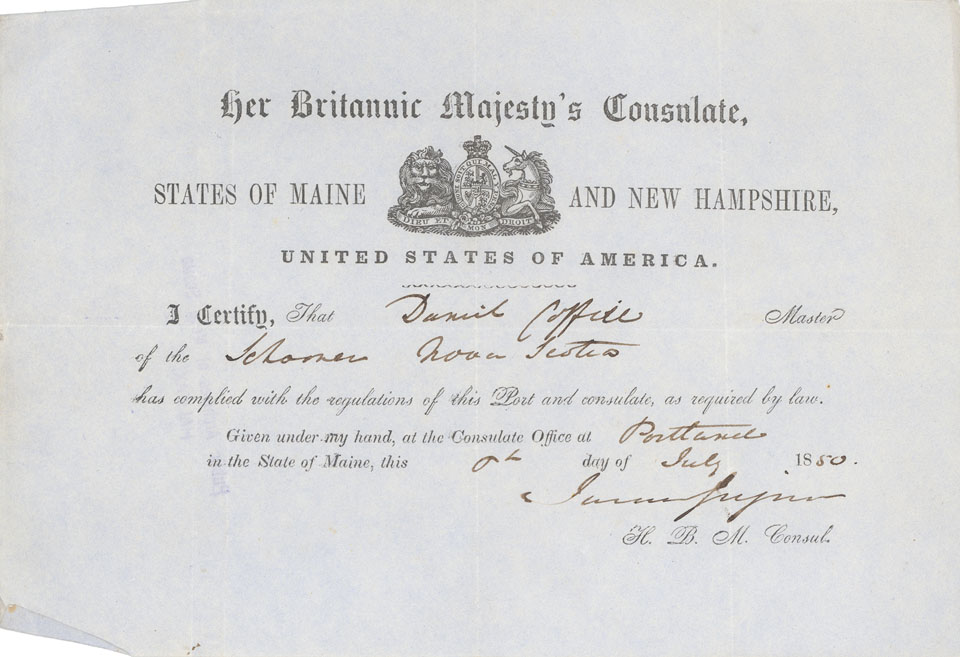 Her Britannic Majesty's Consulate,
STATES OF MAINE AND NEW HAMPSHIRE,
DIEU ET MON DROIT
UNITED STATES OF AMERICA.
I Certify, That Daniel Coffill Master
of the Schooner Nova Scotia
has complied with the regulations of this Port and consulate, as required by law.
Given under my hand, at the Consulate Office at Portland
in the State of Maine, this day of July 1850.
H. B. M. Consul.